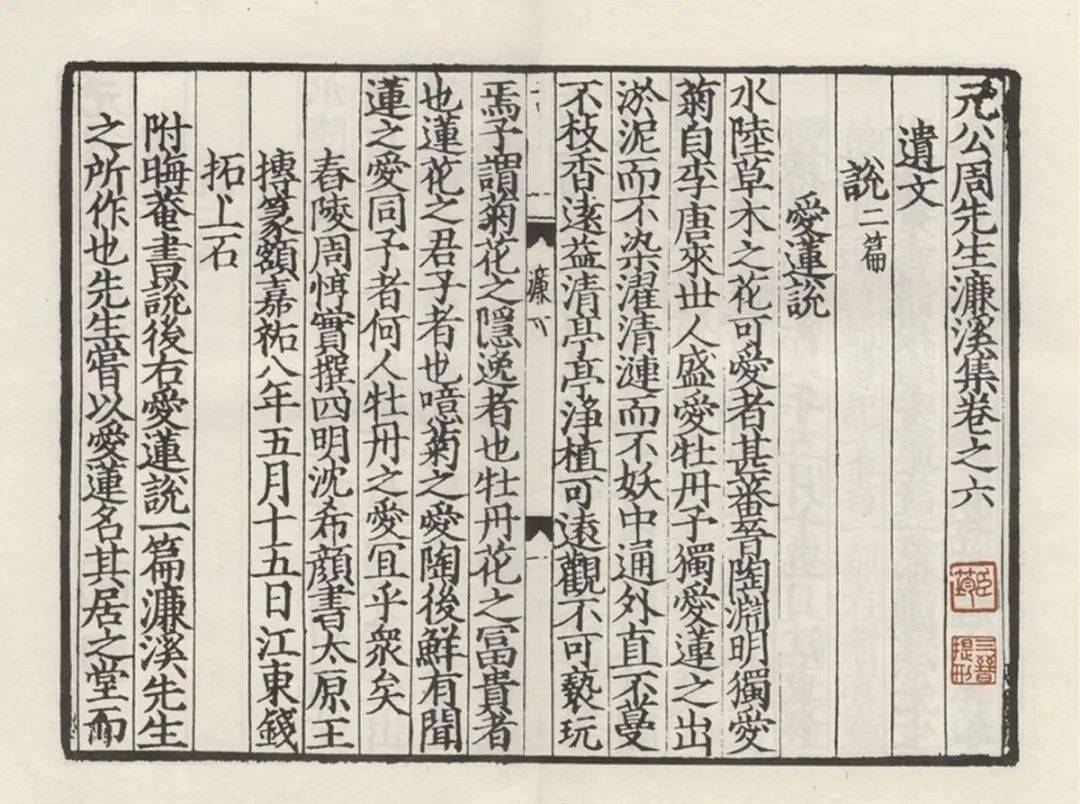 元公周先生濂溪集卷之六
遺文
說二篇
愛蓮說
水陸草木之花可愛者甚蕃晉陶淵明獨愛
菊自李唐來世人盛愛牡丹予獨愛蓮之出
淤泥而不染濯清漣而不妖中通外直不蔓
不枝香遠益清亭亭淨植可遠觀不可褻玩
濂
焉予謂菊花之隱逸者也牡丹花之富貴者
也蓮花之君子者也噫菊之愛陶後鮮有聞
蓮之愛同予者何人牡丹之愛宜乎衆矣
舂陵周惇實撰四明沈希顏書太原王
摶篆額嘉祐八年五月十五日江東錢
拓上石
附晦菴書說後右愛蓮說一篇濂溪先生
之所作也先生嘗以愛蓮名其居之堂而